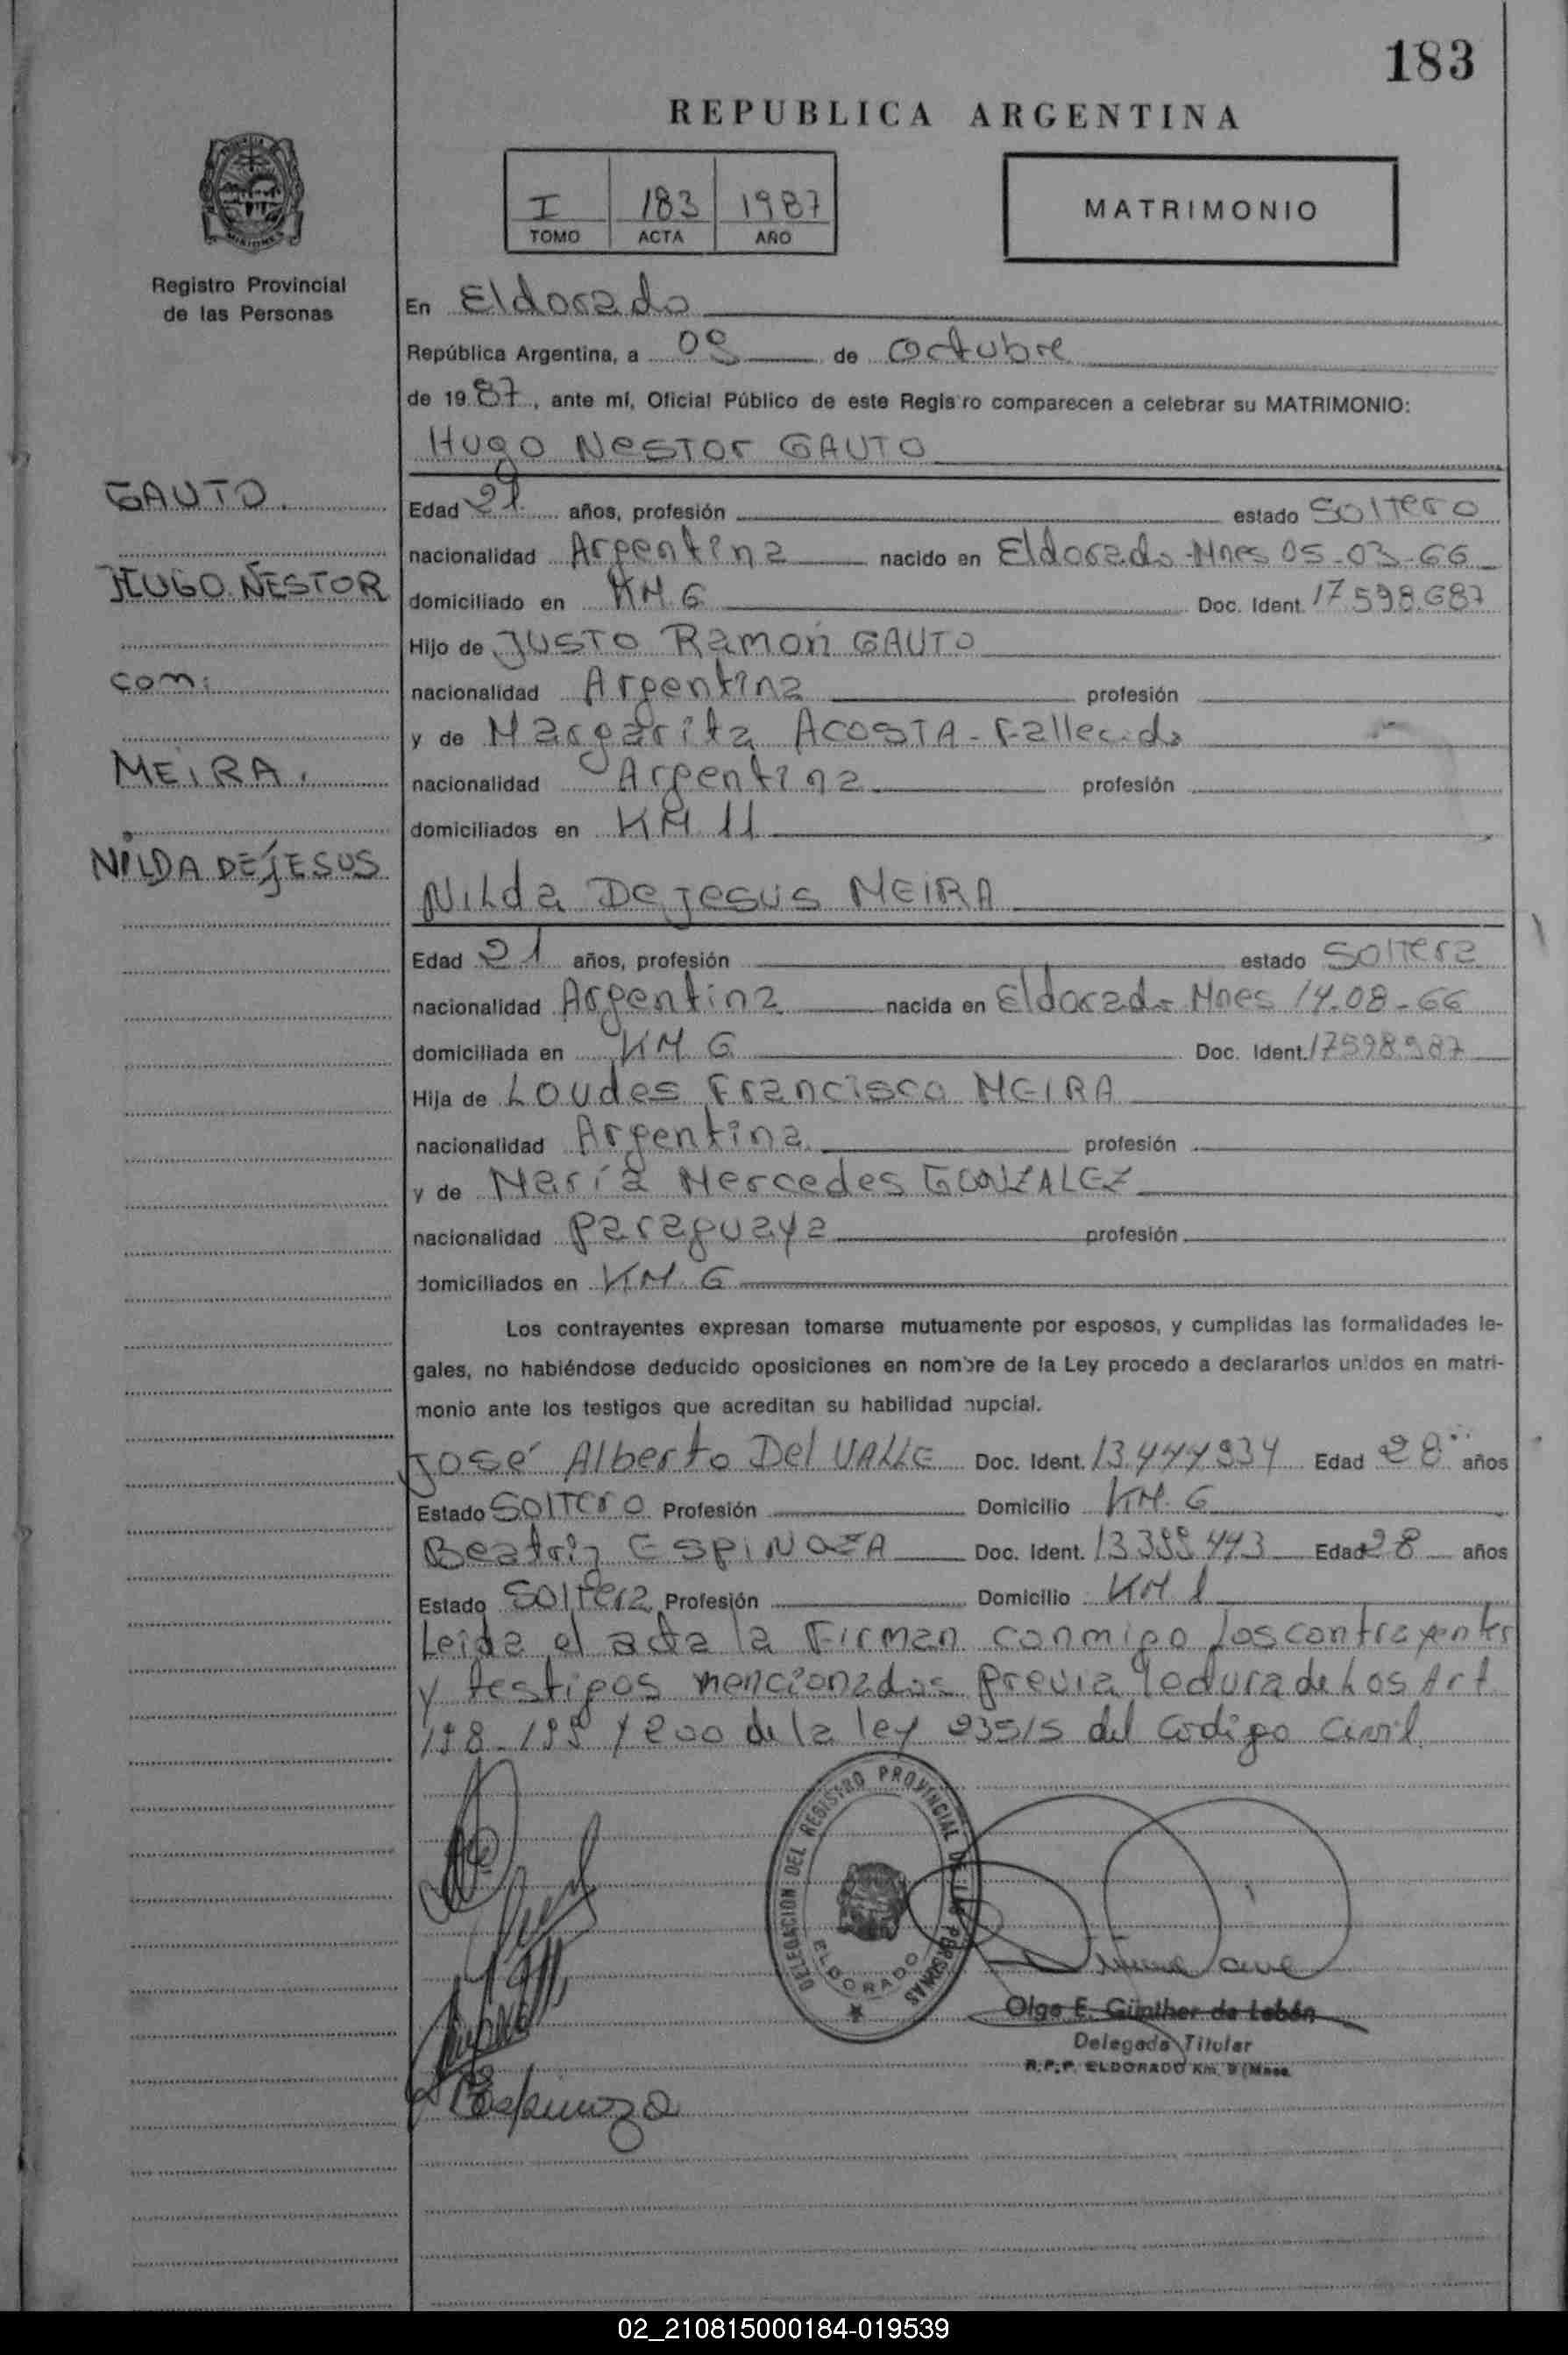 183
REPUBLICA ARGENTINA
I 183 1987
TOMO ACTA AÑO
MATRIMONIO
Registro Provincial
de las Personas
En Eldorado
República Argentina, a 09 de octubre
de 1987, ante mí, Oficial Público de este Registro comparecen a celebrar su MATRIMONIO:
Hugo Nestor GAUTO
GAUTO.
HUGO NESTOR
com:
MEIRA.
NILDA DE JESUS
Edad 21 años, profesión estado Soltero
nacionalidad Argentina nacido en Eldorado-Mnes 05-03-66
domiciliado en KM 6 Doc. Ident. 17598687
Hijo de Justo Ramón GAUTO
nacionalidad Argentina profesión
y de Margarita ACOSTA - Fallecida
nacionalidad Argentina profesión
domiciliados en KM 11
Nilda De Jesus MEIRA
Edad 21 años, profesión estado Soltera
nacionalidad Argentina nacida en Eldorado Mnes 14-08-66
domiciliada en KM 6 Doc. Ident. 17598987
Hija de Loudes Francisco MEIRA
nacionalidad Argentina profesión
y de María Mercedes GONZALEZ
nacionalidad paraguaya profesión
domiciliados en KM 6
Los contrayentes expresan tomarse mutuamente por esposos, y cumplidas las formalidades le-
gales, no habiéndose deducido oposiciones en nombre de la Ley procedo a declararlos unidos en matri-
monio ante los testigos que acreditan su habilidad nupcial.
José Alberto Del VALLE Doc. Ident. 13.444934 Edad 28 años
Estado Soltero Profesión Domicilio KM. 6
Beatriz ESPINOZA Doc. Ident. 13399443 Edad 28 años
Estado Soltera Profesión Domicilio KM 1
Leida el acta la Firman conmigo los contrayentes
y testigos mencionados previa lectura de los Art
198-199 y 200 de la ley 23515 del Codigo Civil
DELEGACION DEL REGISTRO PROVINCIAL DE LAS PERSONAS
ELDORADO
Olga E. Günther de Lebán
Delegada Titular
R.P.P. ELDORADO Km. 9 (Mnes.
Espinoza
02_210815000184-019539